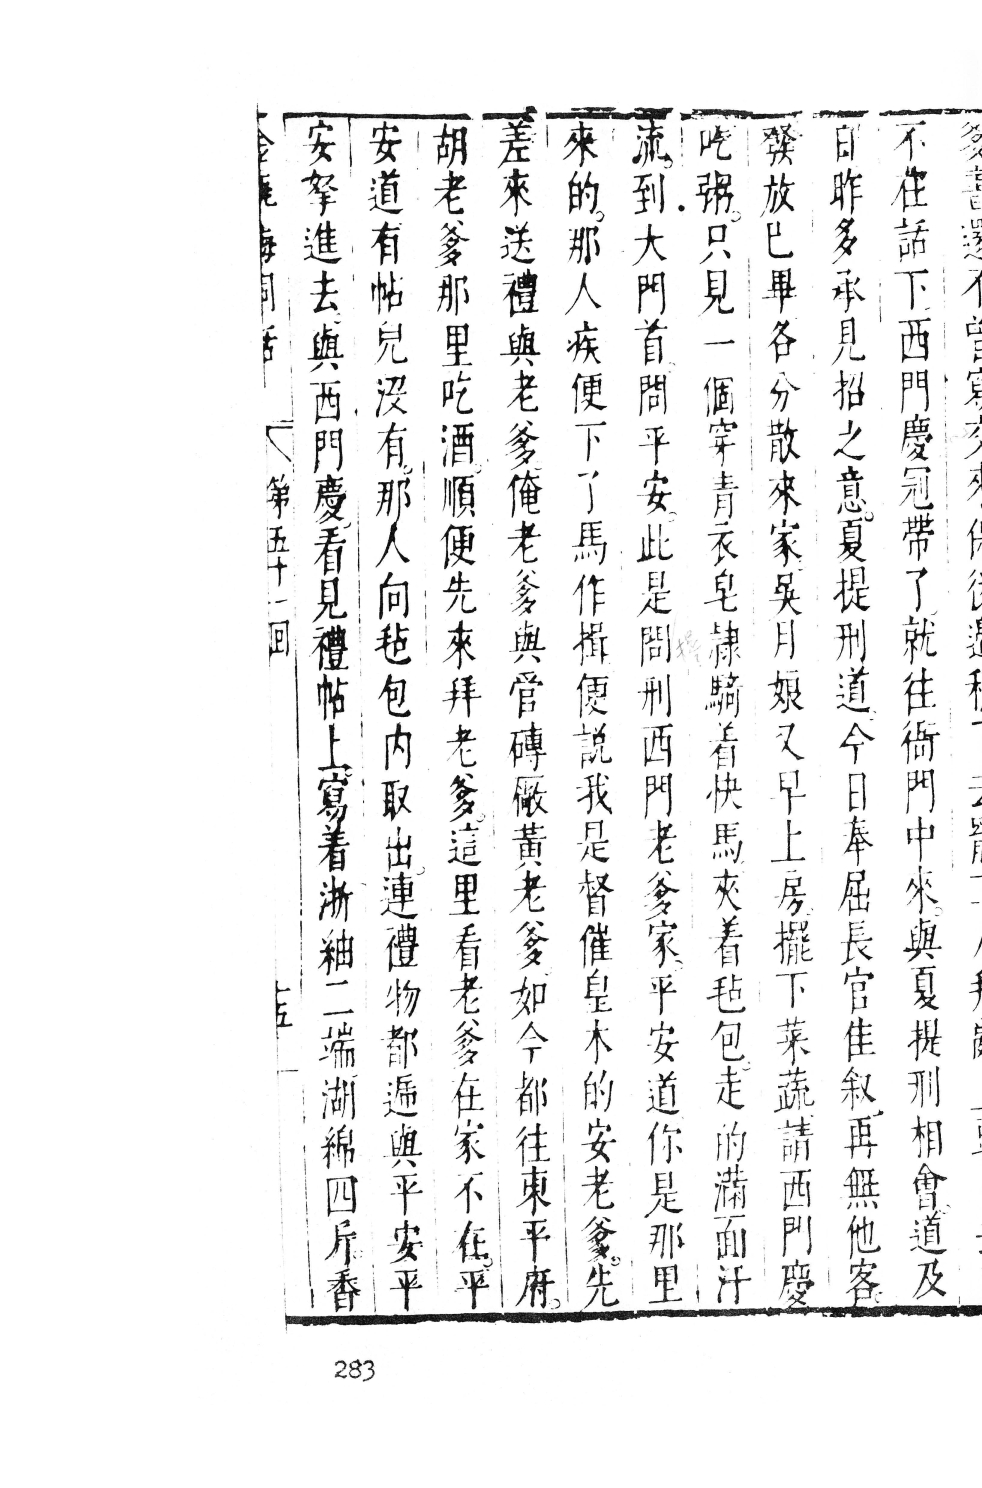 不在話下西門慶冠帶了就往衙門中來與夏提刑相會道及
日昨多承見招之意夏提刑道今日奉屈長官佳叙再無他客
發放已畢各分散來家吳月娘又早上房擺下菜蔬請西門慶
吃粥只見一個穿青衣皂隸騎着快馬夾着毡包走的滿面汗
流到大門首問平安此是問刑西門老爹家平安道你是那里
來的那人疾便下了馬作揖便説我是督催皇木的安老爹先
差來送禮與老爹俺老爹與管磚廠黃老爹如今都往東平府
胡老爹那里吃酒順便先來拜老爹這里看老爹在家不在平
安道有帖兒沒有那人向毡包內取出連禮物都遞與平安平
安拏進去與西門慶看見禮帖上寫着浙紬二端湖綿四斤香
第五十一回
283